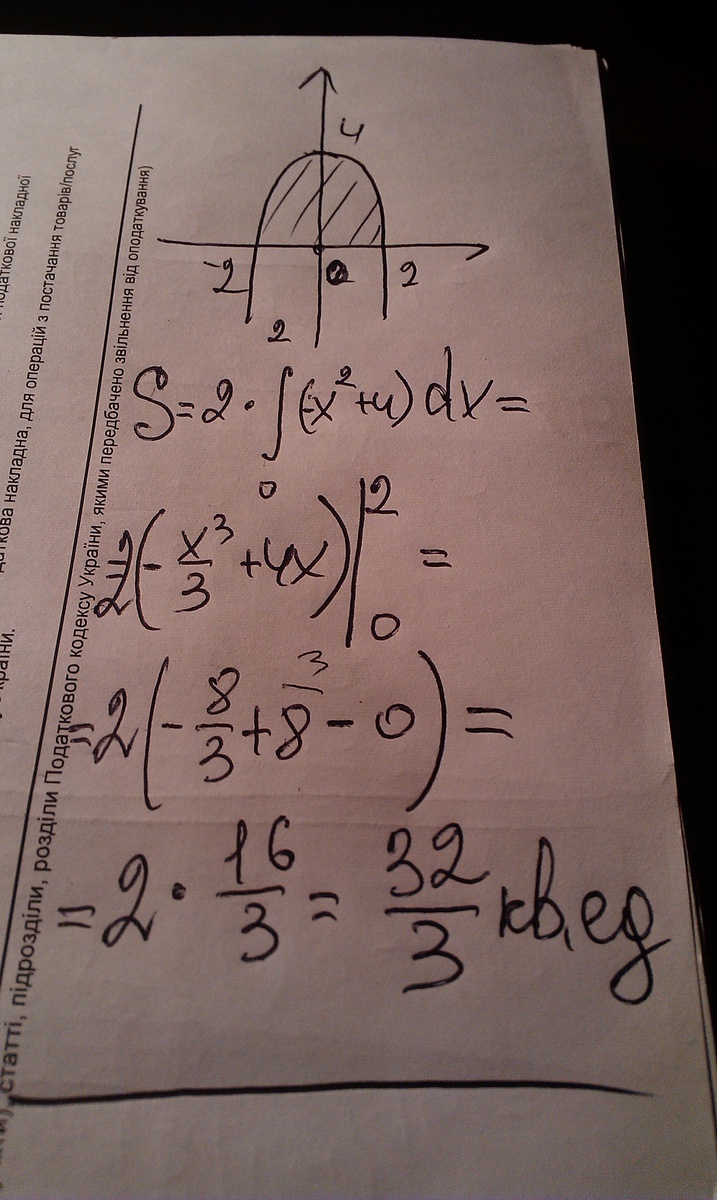 4
-2 0 2
S=2·∫₀²(-x²+4)dx=
=2(-x³/3+4x)|₀²=
=2(-8/3+8\3-0)=
=2·16/3=32/3 кв,ед
податкової накладної
накладна, для операцій з постачання товарів/послуг
країни.
статті, підрозділи, розділи Податкового кодексу України, якими передбачено звільнення від оподаткування)